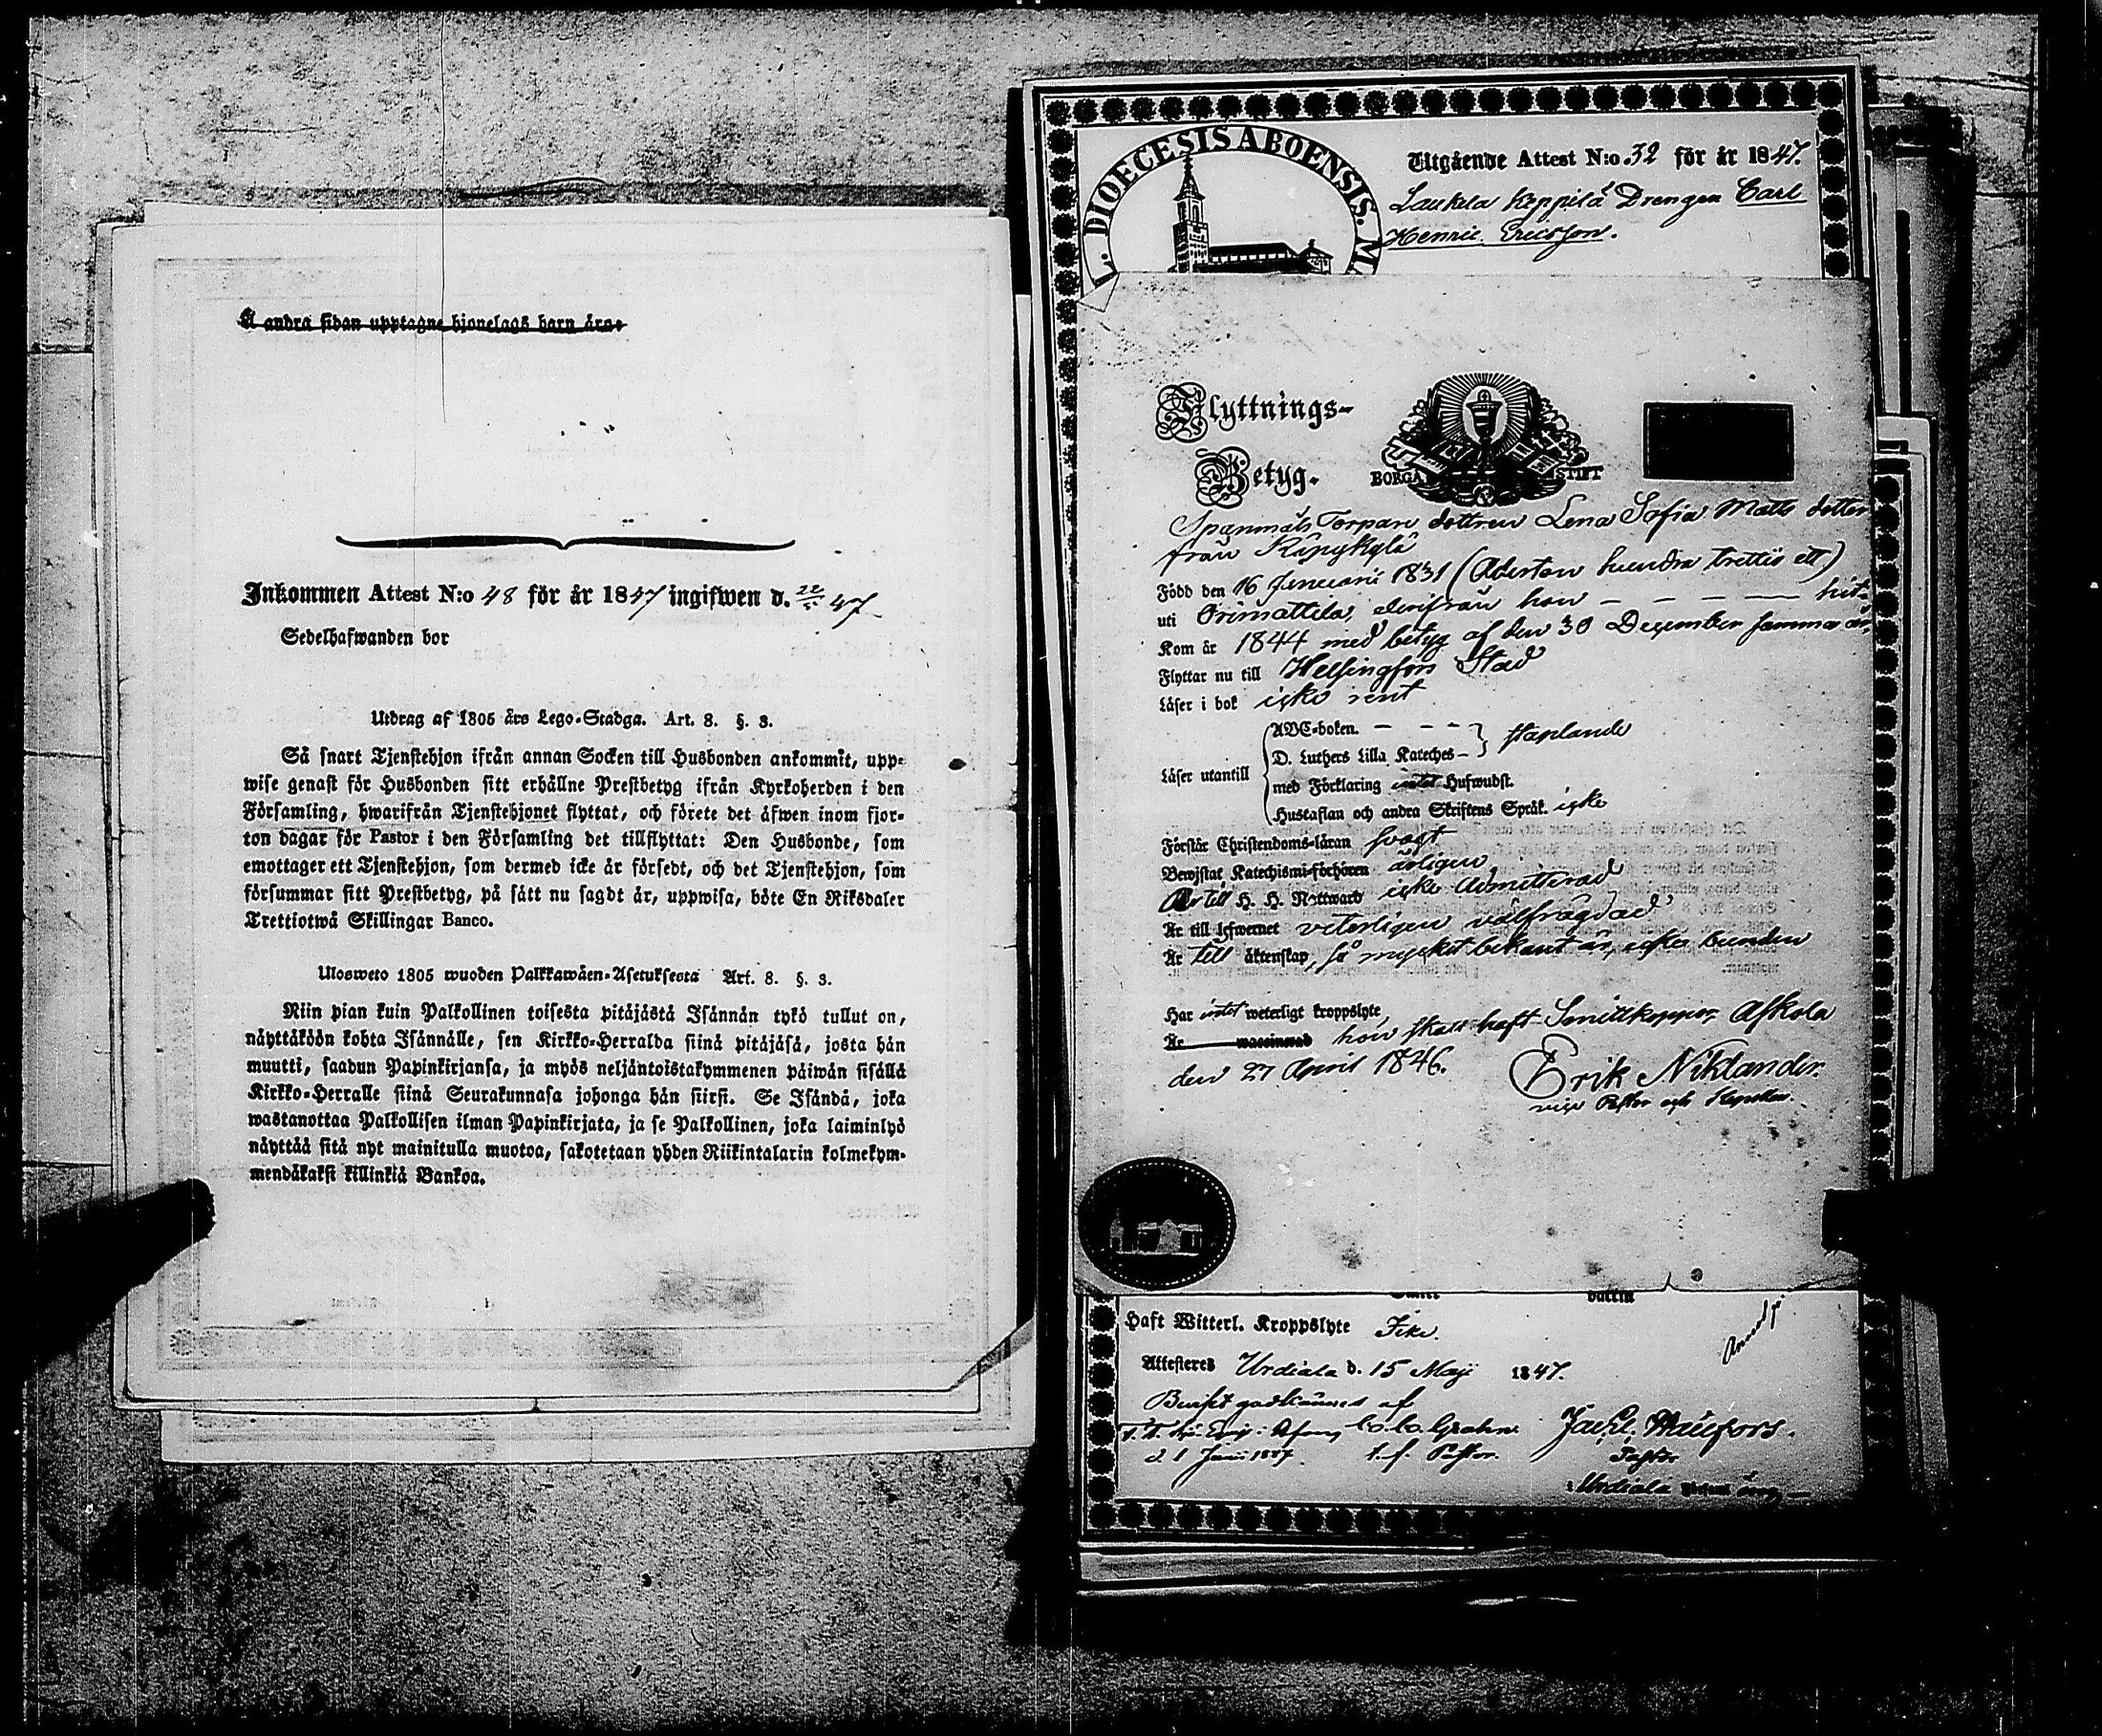 Å andra sidan upptagne hjonelags barn äro:
Inkommen Attest N:o 48 för år 1847 ingifwen d. 22/5 47
Sedelhafwanden bor
Utdrag af 1805 års Lego-Stadga. Art. 8. §. 3.
Så snart Tjenstehjon ifrån annan Socken till Husbonden ankommit, upp-
wise genast för Husbonden sitt erhållne Prestbetyg ifrån Kyrkoherden i den
Församling, hwarifrån Tjenstehjonet flyttat, och förete det äfwen inom fjor-
ton dagar för Pastor i den Församling det tillflyttat: Den Husbonde, som
emottager ett Tjenstehjon, som dermed icke är försedt, och det Tjenstehjon, som
försummar sitt Prestbetyg, på sätt nu sagdt är, uppwisa, böte En Riksdaler
Trettiotwå Skillingar Banco.
Ulosweto 1805 wuoden Palkkawäen-Asetuksesta Art. 8. §. 3.
Niin pian kuin Palkollinen toisesta pitäjästä Isännän tykö tullut on,
näyttäköön kohta Isännälle, sen Kirkko-Herralda siinä pitäjäsä, josta hän
muutti, saadun Papinkirjansa, ja myös neljäntoistakymmenen päiwän sisällä
Kirkko-Herralle siinä Seurakunnasa johonga hän siirsi. Se Isändä, joka
wastanottaa Palkollisen ilman Papinkirjata, ja se Palkollinen, joka laiminlyö
näyttää sitä nyt mainitulla muotoa, sakotetaan yhden Riikintalarin kolmekym-
mendäkaksi killinkiä Bankoa.
L. DIOECESIS ABOENSIS. MA
Utgående Attest N:o 32 för år 1847.
Laukela Keppilä Drengen Carl
Henric Ericsson.
Flyttnings-
Betyg.
BORGÅ STIFT
Spanmåls Torpare dottren Lena Sofia Matts dotter
från Käpykylä
Född den 16 Januarii 1831 (Aderton hundra trettio ett)
uti Orimattila, derifrån hon – – – — hit-
Kom år 1844 med betyg af den 30 December samma år.
Flyttar nu till Helsingfors Stad
Läser i bok icke rent
Läser utantill
ABC-boken. – – – –
D. Luthers Lilla Kateches – staplande
med Förklaring intet Hufwudst.
Hustaflan och andra Skriftens Språk. icke
Förstår Christendoms-läran svagt
Bewistat Katechismi-förhören årligen
Är till H. H. Nattward icke Admitterad
Är till lefwernet veterligen välfrägdad
Är till äktenskap, så mycket bekant är, icke bunden
Har intet weterligt kroppslyte,
Är waccinerad hon skall haft Smittkoppor, Askola
den 27 April 1846. Erik Niklander.
vice Pastor och Kyrkoh.
Haft Witterl. Kroppslyte Icke.
Attesteres Urdiala d. 15 Maji 1847.
Beviset godkännes af
C. G. Grahn
d. 1 Junii 1847 t. f. Pastor.
Pastor
Urdiala